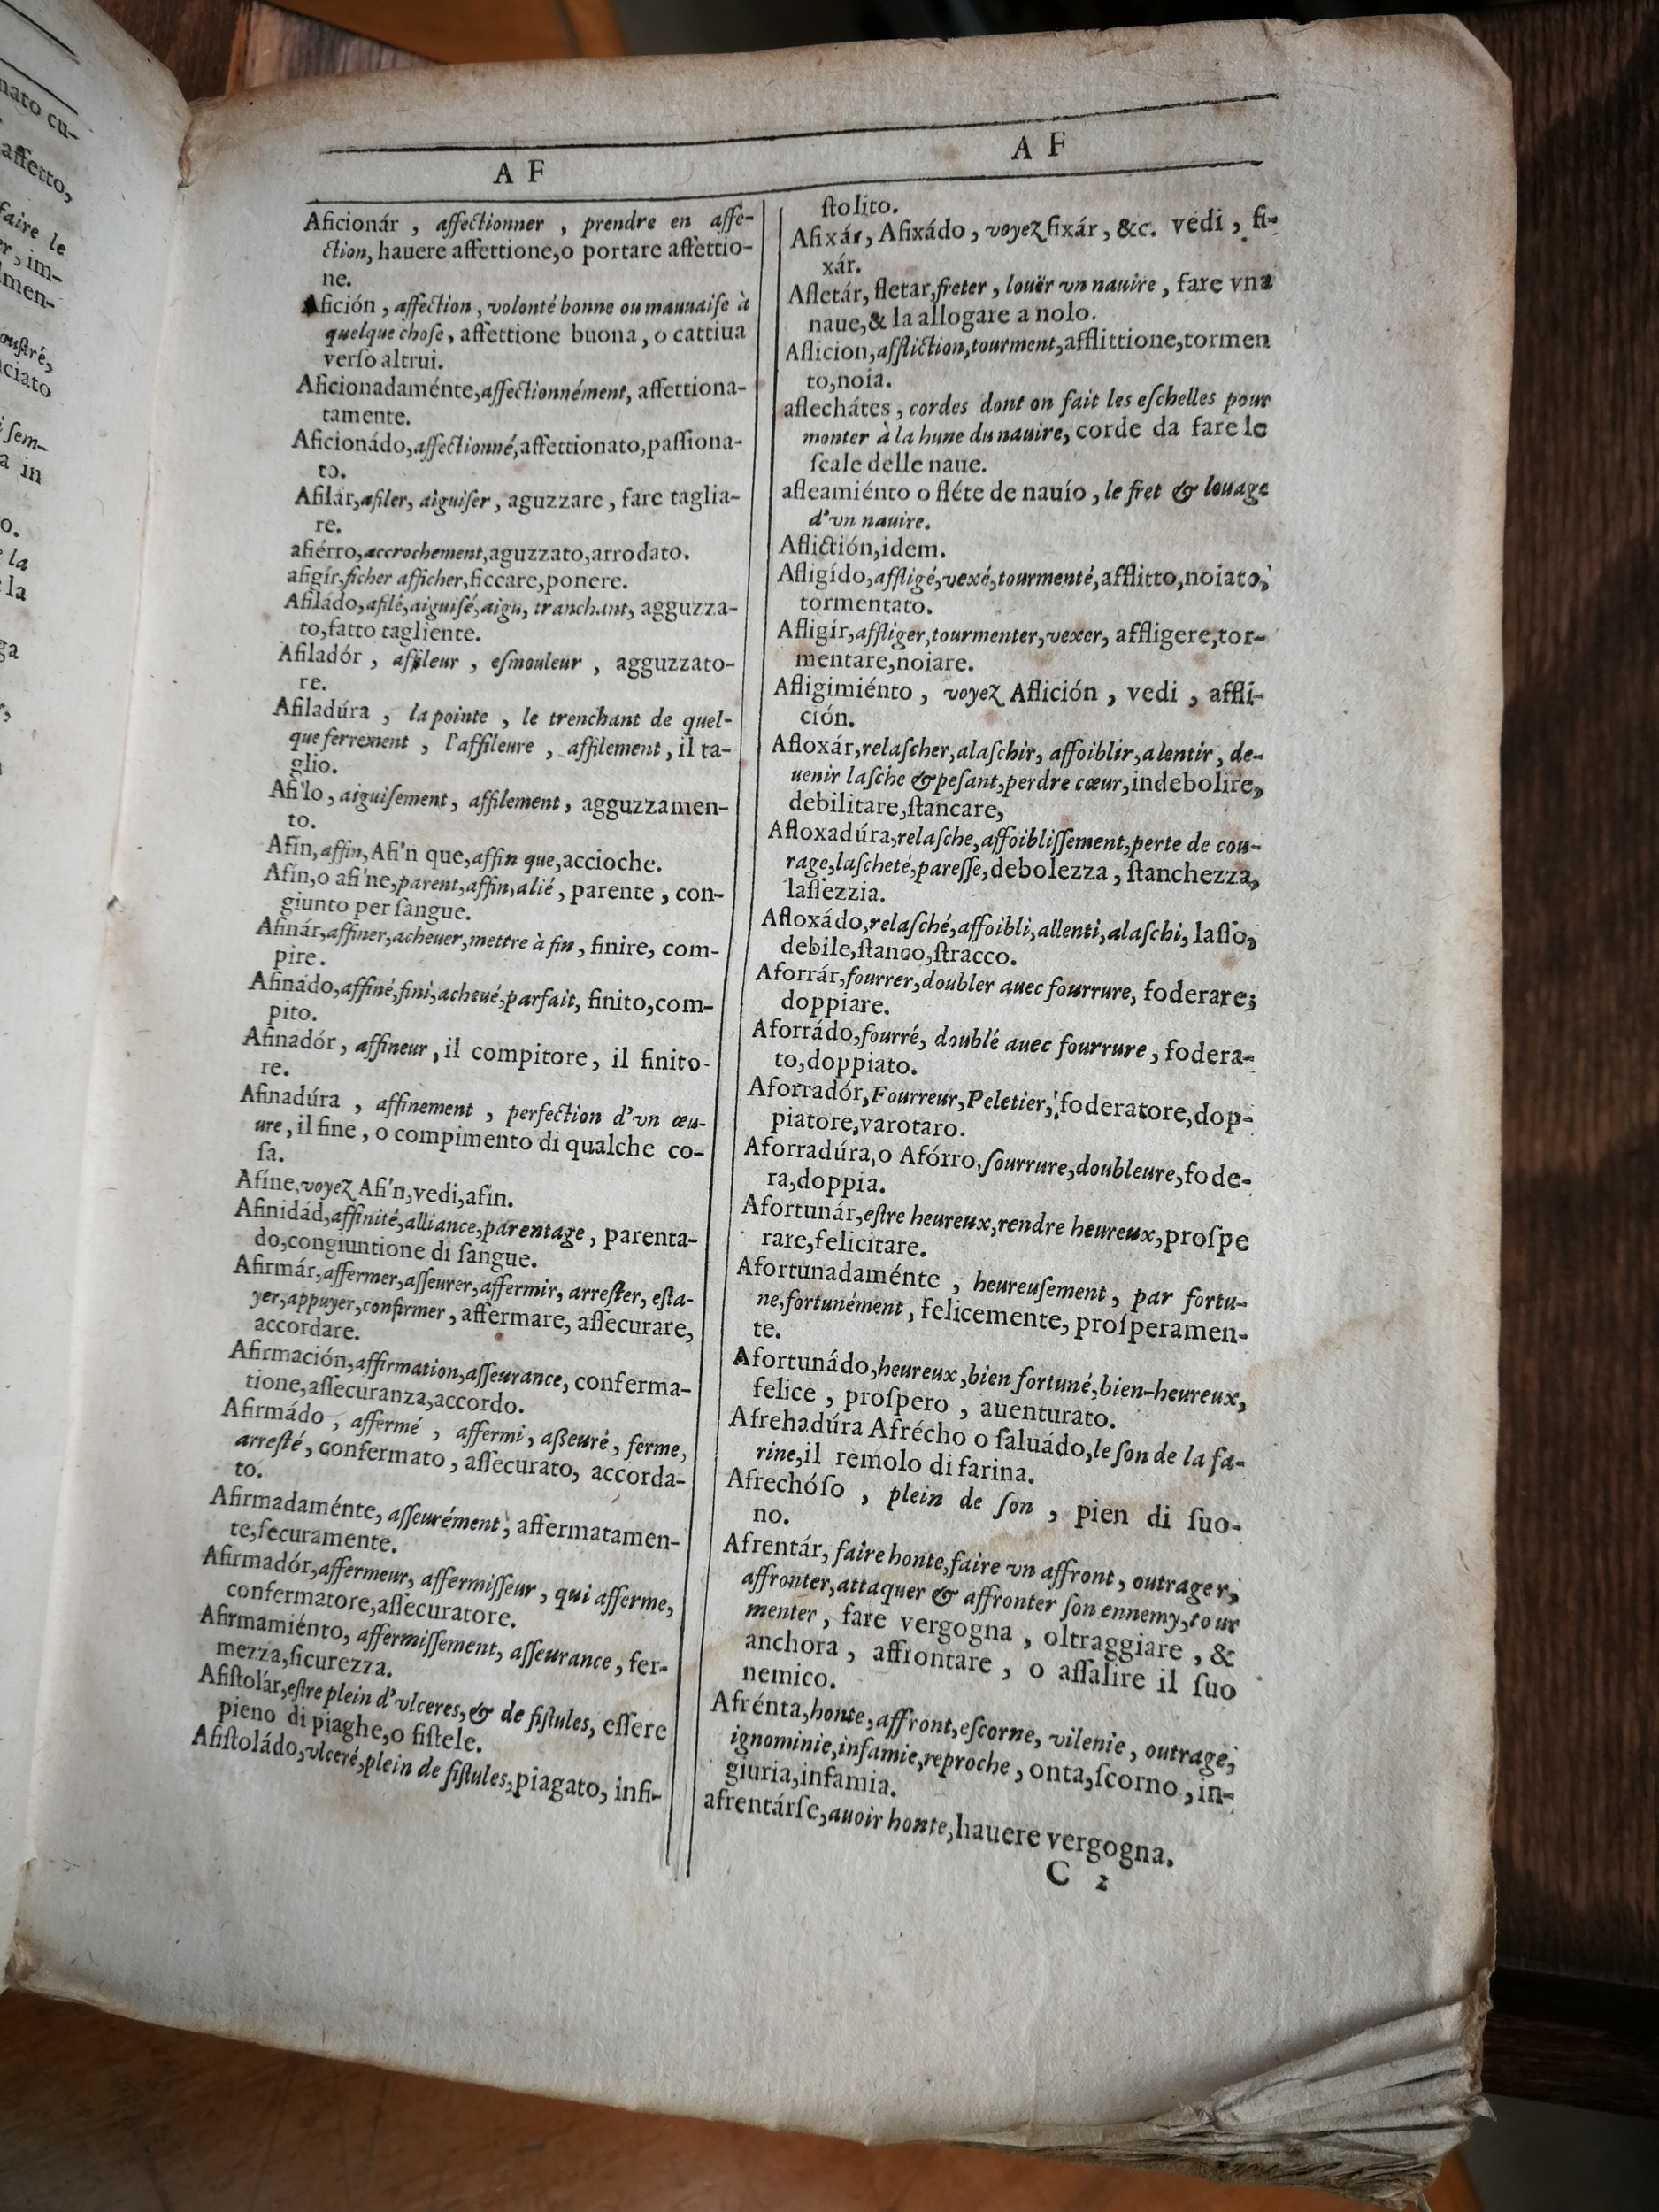 nato cu-
affetto,
faire le
er, im-
lmen-
ouſtré,
ciato
i ſem-
a in
o.
e la
la
ga
A F
Aficionár , affectionner , prendre en affe-
ction, hauere affettione,o portare affettio-
ne.
Afición , affection , volonté bonne ou mauuaiſe à
quelque choſe , affettione buona , o cattiua
verſo altrui.
Aficionadaménte,affectionnément, affettiona-
tamente.
Aficionádo,affectionné,affettionato,paſſiona-
to.
Afilár,afiler, aiguiſer , aguzzare , fare taglia-
re.
afiérro,accrochement,aguzzato,arrodato.
afigír,ficher afficher,ficcare,ponere.
Afiládo,afilé,aiguiſé,aigu, tranchant, agguzza-
to,fatto tagliente.
Afiladór , affileur , eſmouleur , agguzzato-
re.
Afiladúra , la pointe , le trenchant de quel-
que ferrement , l'affileure , affilement , il ta-
glio.
Afi'lo , aiguiſement , affilement , agguzzamen-
to.
Afín,affin,Afi'n que,affin que,accioche.
Afín,o afi'ne,parent,affin,alié , parente , con-
giunto per ſangue.
Afinár,affiner,acheuer,mettre à fin , finire, com-
pire.
Afinádo,affiné,fini,acheué,parfait, finito,com-
pito.
Afinadór , affineur , il compitore , il finito-
re.
Afinadúra , affinement , perfection d'vn œu-
ure , il fine , o compimento di qualche co-
ſa.
Afíne,voyez Afi'n,vedi,afín.
Afinidád,affinité,alliance,parentage , parenta-
do,congiuntione di ſangue.
Afirmár,affermer,aſſeurer,affermir, arreſter, eſta-
yer,appuyer,confirmer , affermare, aſſecurare,
accordare.
Afirmación,affirmation,aſſeurance, conferma-
tione,aſſecuranza,accordo.
Afirmádo , affermé , affermi , aßeuré , ferme,
arreſté , confermato , aſſecurato, accorda-
to.
Afirmadaménte, aſſeurément , affermatamen-
te,ſecuramente.
Afirmadór,affermeur, affermiſſeur , qui afferme,
confermatore,aſſecuratore.
Afirmamiénto, affermiſſement, aſſeurance , fer-
mezza,ſicurezza.
Afiſtolár,eſtre plein d'vlceres,& de fiſtules, eſſere
pieno di piaghe,o fiſtele.
Afiſtoládo,vlceré,plein de fiſtules,piagato, infi-
A F
ſtolito.
Afixár, Afixádo , voyez fixár , &c. vedi , fi-
xár.
Afletár, fletar,freter , louër vn nauire , fare vna
naue,& la allogare a nolo.
Aflicion,affliction,tourment,afflittione,tormen
to,noia.
aflechátes , cordes dont on fait les eſchelles pour
monter à la hune du nauire, corde da fare le
ſcale delle naue.
afleamiénto o fléte de nauío , le fret & louage
d'vn nauire.
Aflictión,idem.
Afligído,affligé,vexé,tourmenté,afflitto,noiato,
tormentato.
Afligír,affliger,tourmenter,vexer, affligere,tor-
mentare,noiare.
Afligimiénto , voyez Aflición , vedi , affli-
ción.
Afloxár,relaſcher,alaſchir, affoiblir,alentir , de-
uenir laſche & peſant,perdre cœur,indebolire,
debilitare,ſtancare,
Afloxadúra,relaſche,affoibliſſement,perte de cou-
rage,laſcheté,pareſſe,debolezza , ſtanchezza,
laſſezzia.
Afloxádo,relaſché,affoibli,allenti,alaſchi, laſſo,
debile,ſtanco,ſtracco.
Aforrár,fourrer,doubler auec fourrure, foderare;
doppiare.
Aforrádo,fourré, doublé auec fourrure , fodera-
to,doppiato.
Aforradór,Fourreur,Peletier,foderatore,dop-
piatore,varotaro.
Aforradúra,o Afórro,fourrure,doubleure,fode-
ra,doppia.
Afortunár,eſtre heureux,rendre heureux,proſpe
rare,felicitare.
Afortunadaménte , heureuſement , par fortu-
ne,fortunément , felicemente, proſperamen-
te.
Afortunádo,heureux,bien fortuné,bien-heureux,
felice , proſpero , auenturato.
Afrehadúra Afrécho o ſaluádo,le ſon de la fa-
rine,il remolo di farina.
Afrechóſo , plein de ſon , pien di ſuo-
no.
Afrentár, faire honte,faire vn affront , outrager,
affronter,attaquer & affronter ſon ennemy,tour
menter , fare vergogna , oltraggiare , &
anchora , affrontare , o aſſalire il ſuo
nemico.
Afrénta,honte,affront,eſcorne, vilenie , outrage,
ignominie,infamie,reproche , onta,ſcorno , in-
giuria,infamia.
afrentárſe,auoir honte,hauere vergogna.
C 2